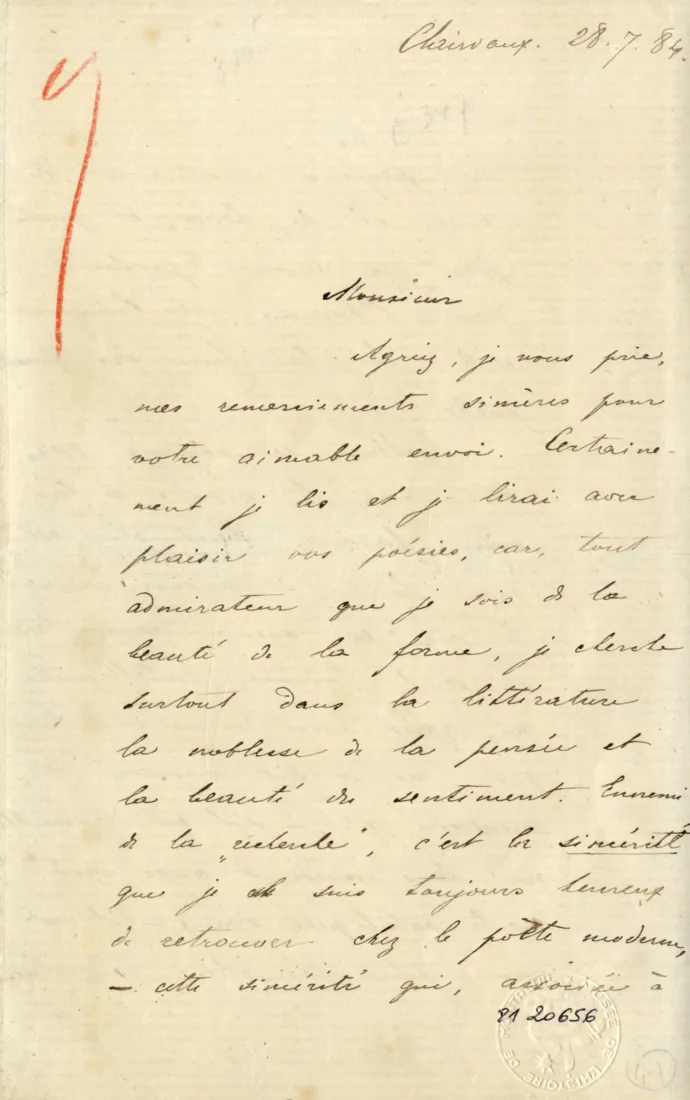 Clairvaux. 28.7.84.
Monsieur
Agréez, je vous prie,
mes remerciements sincères pour
votre aimable envoi. Certaine-
ment je lis et je lirai avec
plaisir vos poésies, car, tout
admirateur que je sois de la
beauté de la forme, je cherche
surtout dans la littérature
la noblesse de la pensée et
la beauté du sentiment. Ennemi
de la „recherche", c'est la sincérité
que je suis toujours heureux
de retrouver chez le poëte moderne,
— cette sincérité qui, associée à
81 20656
MUSÉE DE L'HISTOIRE DE